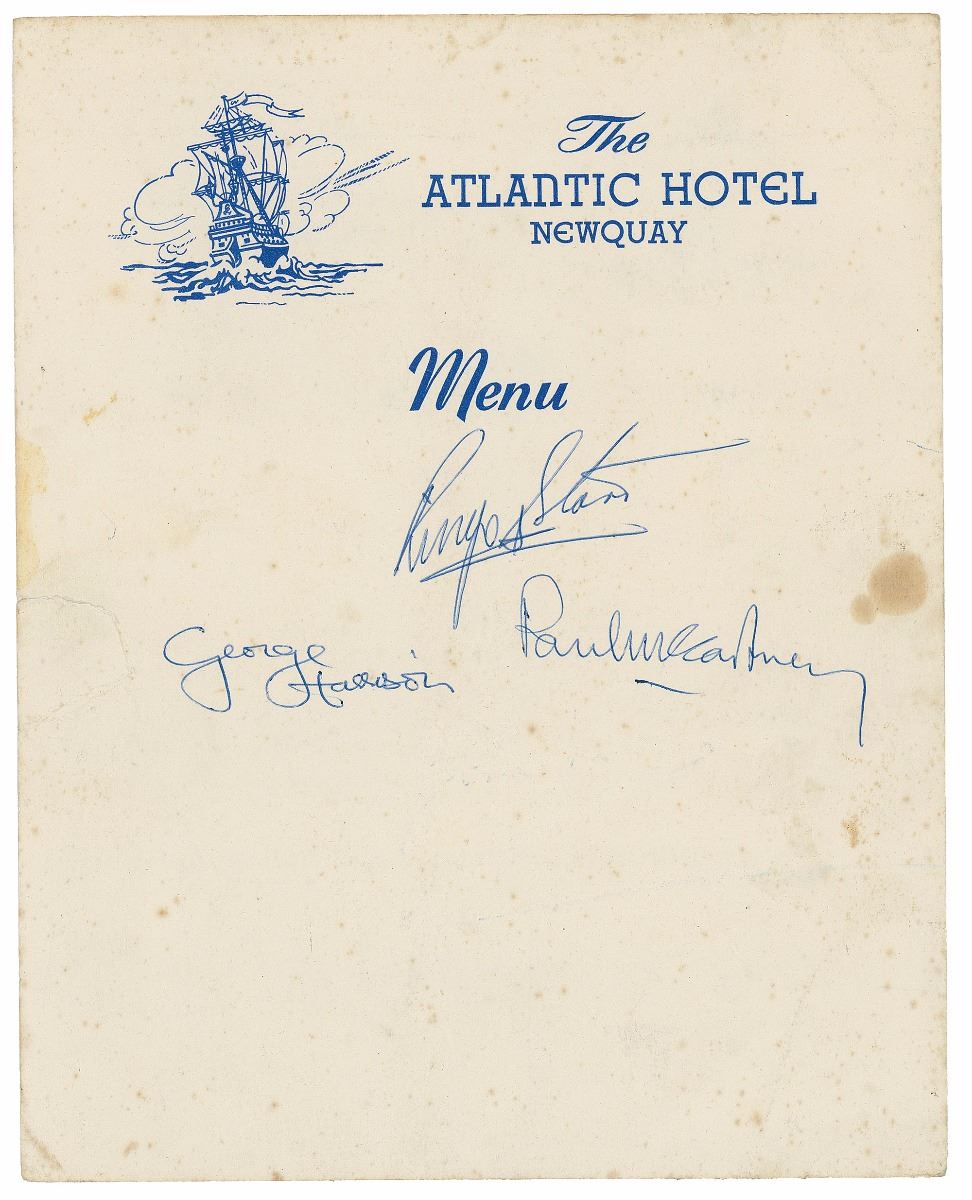 The
ATLANTIC HOTEL
NEWQUAY
Menu
Ringo Starr
George
Harrison
Paul McCartney